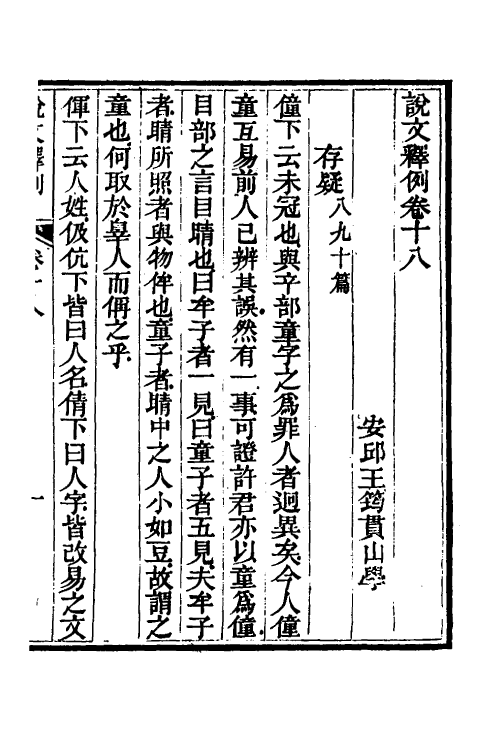 說文釋例卷十八
安邱王筠貫山學
存疑八九十篇
僮下云未冠也與䇂部童字之爲罪人者迥異矣今人僮
童互易前人已辨其誤然有一事可證許君亦以童爲僮
目部之言目睛也曰牟子者一見曰童子者五見夫牟子
者睛所照者與物侔也童子者睛中之人小如豆故謂之
童也何取於辠人而偁之乎
㑮下云人姓伋伉下皆曰人名倩下曰人字皆改易之文
說文釋例
卷十八
一